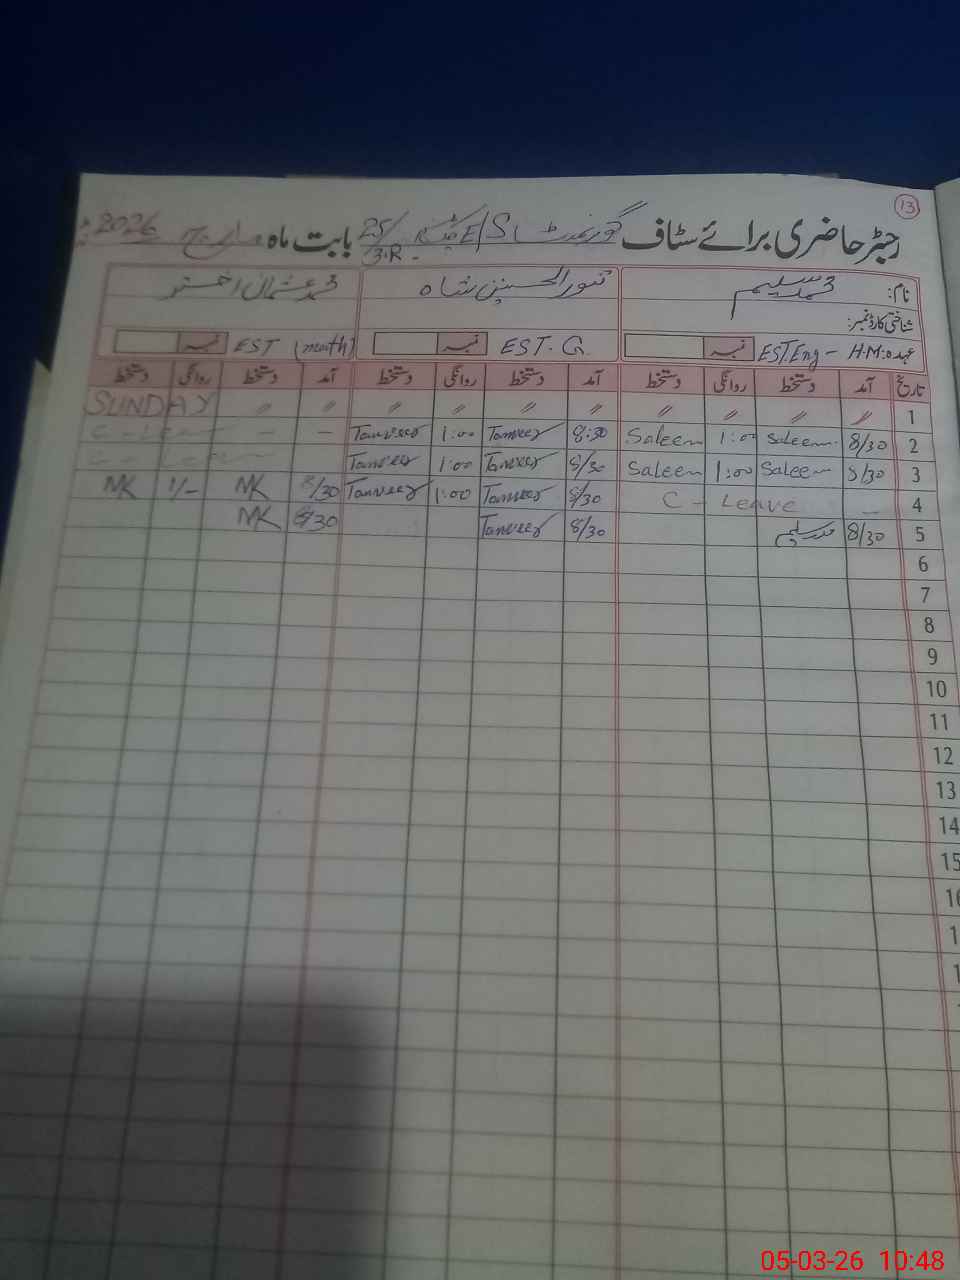 13
رجسٹر حاضری برائے سٹاف گورنمنٹ E/S 25/3.R بابت ماہ مارچ 2026
نام: محمد سلیم تنویر الحسنین شاہ محمد عثمان اختر
شناختی کارڈ نمبر:
عہدہ: EST.Eng - H.M نمبر EST.G نمبر EST (math) نمبر
تاریخ آمد دستخط روانگی دستخط آمد دستخط روانگی دستخط آمد دستخط روانگی دستخط
1 〃 〃 〃 〃 〃 〃 〃 〃 〃 〃 SUNDAY
2 8/30 Saleem 1:00 Saleem 8:30 Tanveer 1:00 Tanveer - - C-Leave
3 8/30 Saleem 1:00 Saleem 8/30 Tanveer 1:00 Tanveer
4 C - Leave - 8/30 Tanveer 1:00 Tanveer 8/30 MK 1/- MK
5 8/30 محمد سلیم 8/30 Tanveer 8/30 MK
6
7
8
9
10
11
12
13
14
15
05-03-26 10:48